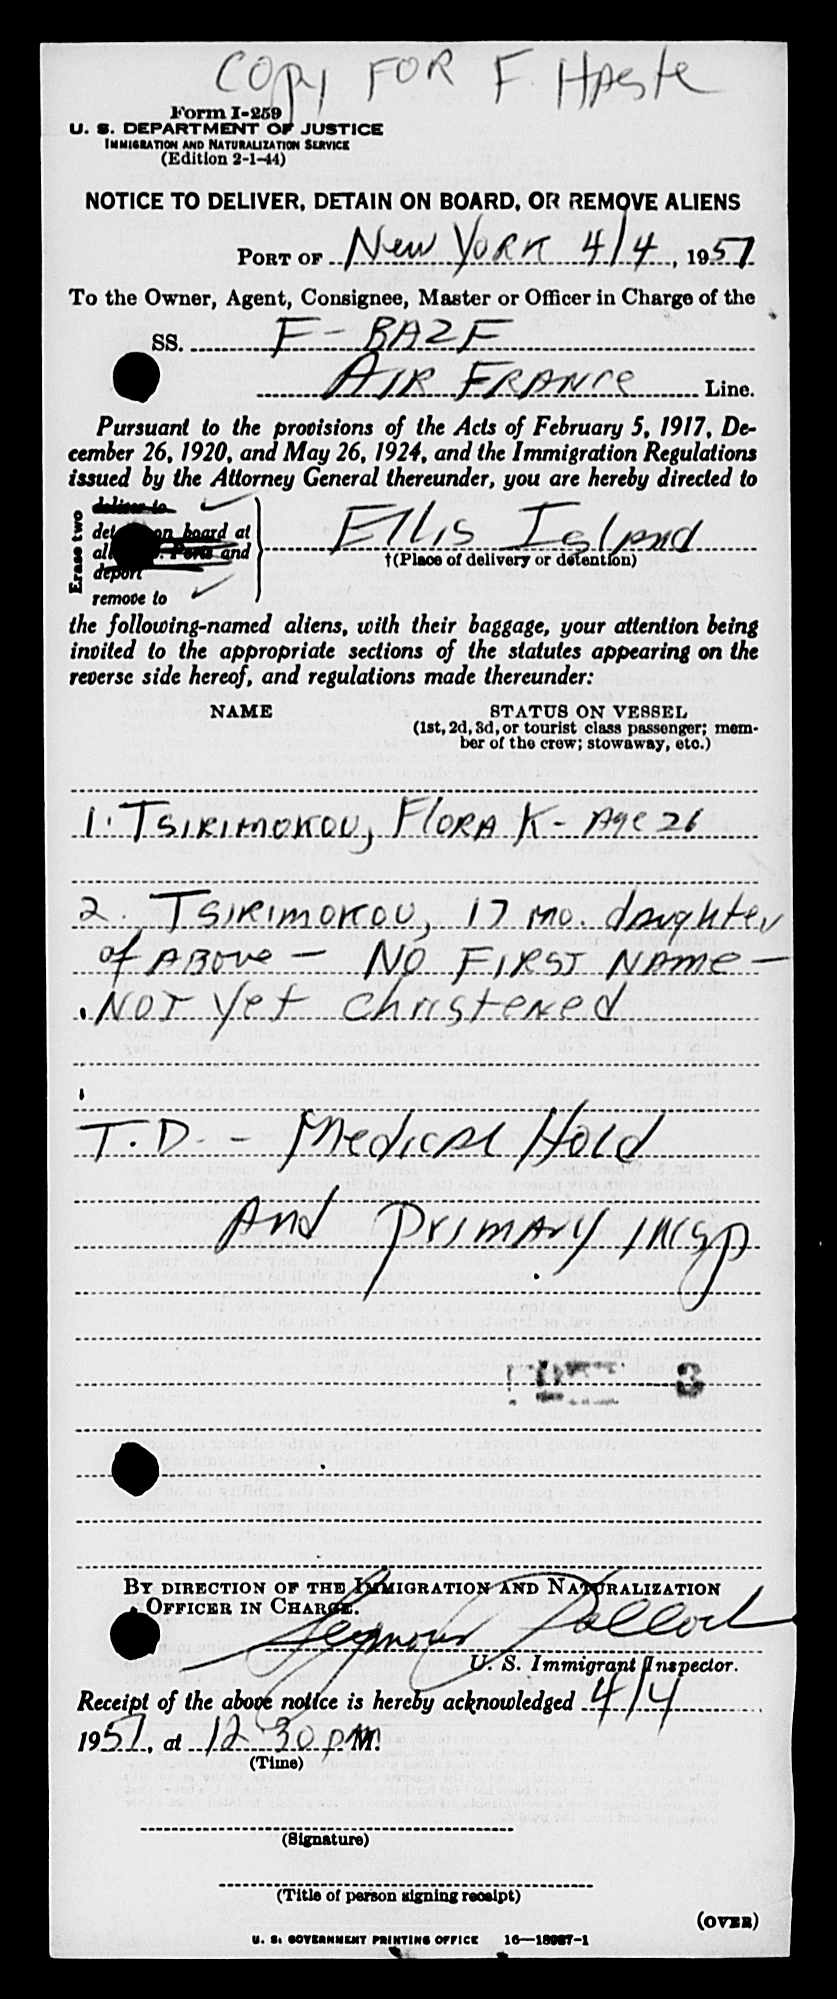 COPY FOR F. HASTE
Form I-259
U. S. DEPARTMENT OF JUSTICE
IMMIGRATION AND NATURALIZATION SERVICE
(Edition 2-1-44)
NOTICE TO DELIVER, DETAIN ON BOARD, OR REMOVE ALIENS
PORT OF New York 4/4, 1951
To the Owner, Agent, Consignee, Master or Officer in Charge of the
SS. F-BAZF
AIR FRANCE Line.
Pursuant to the provisions of the Acts of February 5, 1917, De-
cember 26, 1920, and May 26, 1924, and the Immigration Regulations
issued by the Attorney General thereunder, you are hereby directed to
Erase two
deliver to
on board at
Ports and
deport
remove to
Ellis Island
†(Place of delivery or detention)
the following-named aliens, with their baggage, your attention being
invited to the appropriate sections of the statutes appearing on the
reverse side hereof, and regulations made thereunder:
NAME STATUS ON VESSEL
(1st, 2d, 3d, or tourist class passenger; mem-
ber of the crew; stowaway, etc.)
1. TSIRIMOKOU, FLORA K- Age 26
2. TSIRIMOKOU, 17 mo. daughter
of ABOVE - NO FIRST NAME -
NOT yet christened
T.D. - Medical Hold
And Primary INSP
3
BY DIRECTION OF THE IMMIGRATION AND NATURALIZATION
OFFICER IN CHARGE.
Seymour Pollock
U. S. Immigrant Inspector.
Receipt of the above notice is hereby acknowledged 4/4
1951, at 12 30 P M.
(Time)
(Signature)
(Title of person signing receipt)
(OVER)
U. S. GOVERNMENT PRINTING OFFICE 16—18987-1